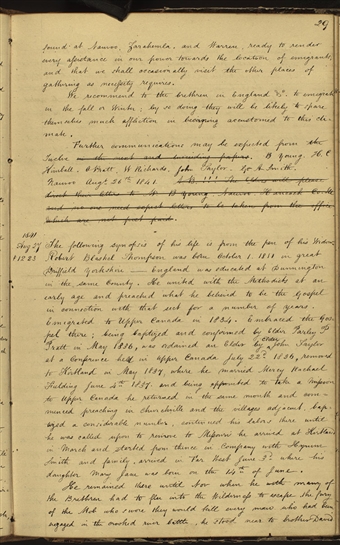 29
found at Nauvoo, Zarahemla, and Warren, ready to render
every assistance in our power towards the location of emigrants,
and that we shall occasionally visit the other places of
gathering as necessity requires.
We recommend to the brethren in England &c. to emigrate
in the fall or Winter, by so doing they will be likely to spare
themselves much affliction in becoming accustomed to this cli-
mate.
Further communications may be expected from the
Twelve in the next and succeeding papers. B. Young, H. C.
Kimball, O. Pratt, W. Richards, John Taylor, Geo. A. Smith,
Nauvoo Augt. 26th 1841. N.B. !!! The Elders will please
direct their letters to B. Young Nauvoo Hancock Co. Ills
letters to be taken from the office
which are not post paid.
1841
Aug 27
1223
The following synopsis of his life is from the pen of his Widow.
Robert Blashel Thompson was born October 1. 1811 in great
Driffield Yorkshire England was educated at Dunnington
in the same County. He united with the Methodists at an
early age and preached what he believed to be the Gospel
in connection with that sect for a number of years.
Emigrated to Upper Canada in 1834. Embraced the Gos-
pel there; being baptized and confirmed by Elder Parley P.
Pratt in May 1836, was ordained an Elder by Elder John Taylor
at a Conference held in Upper Canada July 22d. 1836, removed
to Kirtland in May 1837, where he married Mercy Rachael
Fielding June 4th. 1837. and being appointed to take a Mission
to Upper Canada he returned in the same month and com-
menced preaching in Churchville and the villages adjacent, bap-
tized a considerable number, continued his labors there until
he was called upon to remove to Missouri he arrived at Kirtland
in March and started from thence in Company with Hyrum
Smith and family, arrived in Far West June 3d. where his
daughter Mary Jane was born on the 14th of June.
He remained there until Nov when he with many of
the Brethren had to flee into the Wilderness to escape the fury
of the Mob who swore they would kill every man who had been
engaged in the crooked river battle, he stood near to brother David